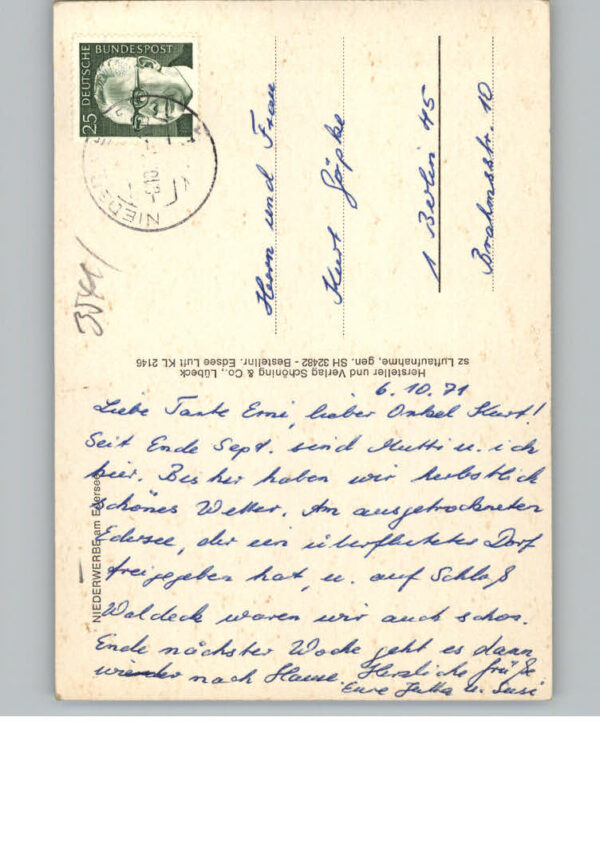 DEUTSCHE BUNDESPOST
25
NIEDER
Herrn und Frau
Kurt Göpke
1 Berlin 45
Brahmsstr. 10
3544/
Hersteller und Verlag Schöning & Co., Lübeck
sz Luftaufnahme, gen. SH 32482 - Bestellnr. Edsee Luft KL 2146
NIEDERWERBE am Edersee
6.10.71
Liebe Tante Erni, lieber Onkel Kurt!
Seit Ende Sept. sind Mutti u. ich
hier. Bisher haben wir herbstlich
schönes Wetter. Am ausgetrockneten
Edersee, der ein überflutetes Dorf
freigegeben hat, u. auf Schloß
Waldeck waren wir auch schon.
Ende nächster Woche geht es dann
wieder nach Hause. Herzliche Grüße
Eure Jutta u. Susi